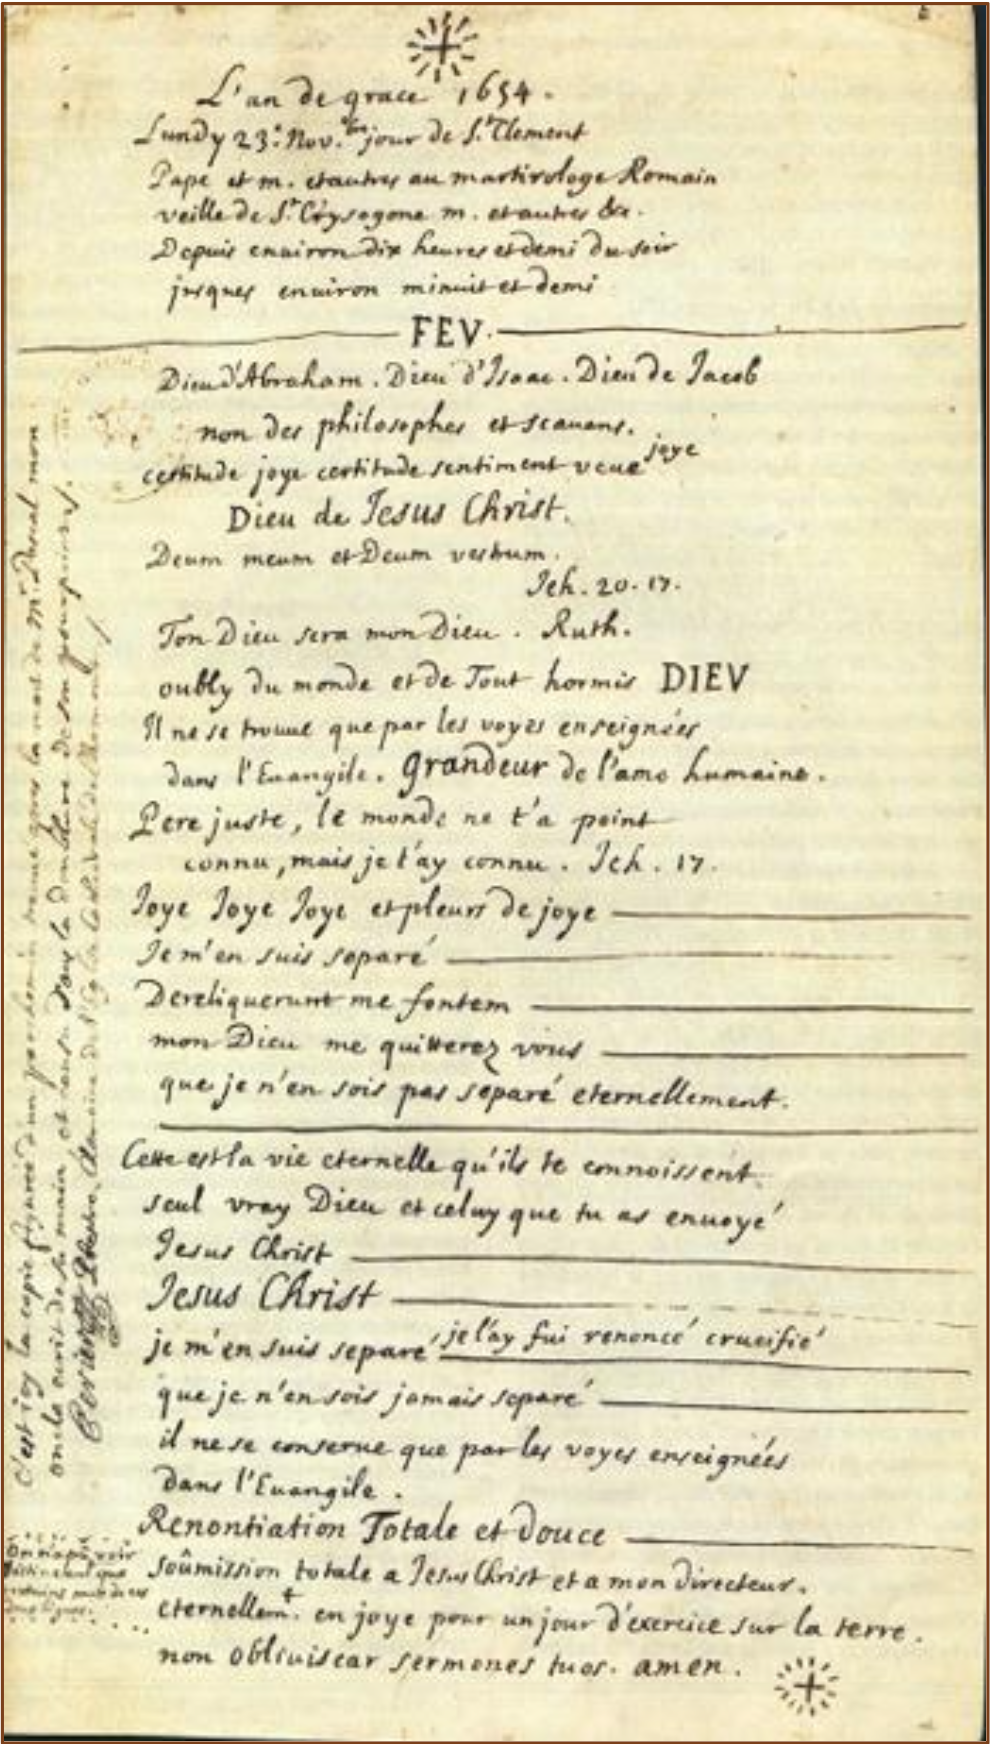 L'an de grace 1654.
Lundy 23.e Nov.bre jour de S.t Clement
Pape et m. et autres au martirologe Romain
veille de S.t Crysogone m. et autres &c.
Depuis enuiron dix heures et demi du soir
jusques enuiron minuit et demi
FEV.
Dieu d'Abraham. Dieu d'Isaac. Dieu de Jacob
non des philosophes et scauans.
certitude joye certitude sentiment veue joye
Dieu de Jesus Christ.
Deum meum et Deum vestrum.
Jeh. 20. 17.
Ton Dieu sera mon Dieu. Ruth.
oubly du monde et de Tout hormis DIEV
Il ne se trouue que par les voyes enseignées
dans l'Euangile. Grandeur de l'ame humaine.
Pere juste, le monde ne t'a point
connu, mais je t'ay connu. Jeh. 17.
Joye Joye Joye et pleurs de joye
Je m'en suis separé
Dereliquerunt me fontem
mon Dieu me quitterez vous
que je n'en sois pas separé eternellement.
Cette est la vie eternelle qu'ils te connoissent
seul vray Dieu et celuy que tu as enuoyé
Jesus Christ
Jesus Christ
je m'en suis separé je l'ay fui renoncé crucifié
que je n'en sois jamais separé
il ne se conserue que par les voyes enseignées
dans l'Euangile.
Renontiation Totale et douce
soûmission totale a Jesus Christ et a mon directeur.
eternellem.t en joye pour un jour d'exercice sur la terre.
non obliuiscar sermones tuos. amen.
C'est icy la copie figurée d'un parchemin trouué apres la mort de Mr. Pascal mon
oncle ecrit de sa main et cousu dans la doublure de son pourpoint
Perier